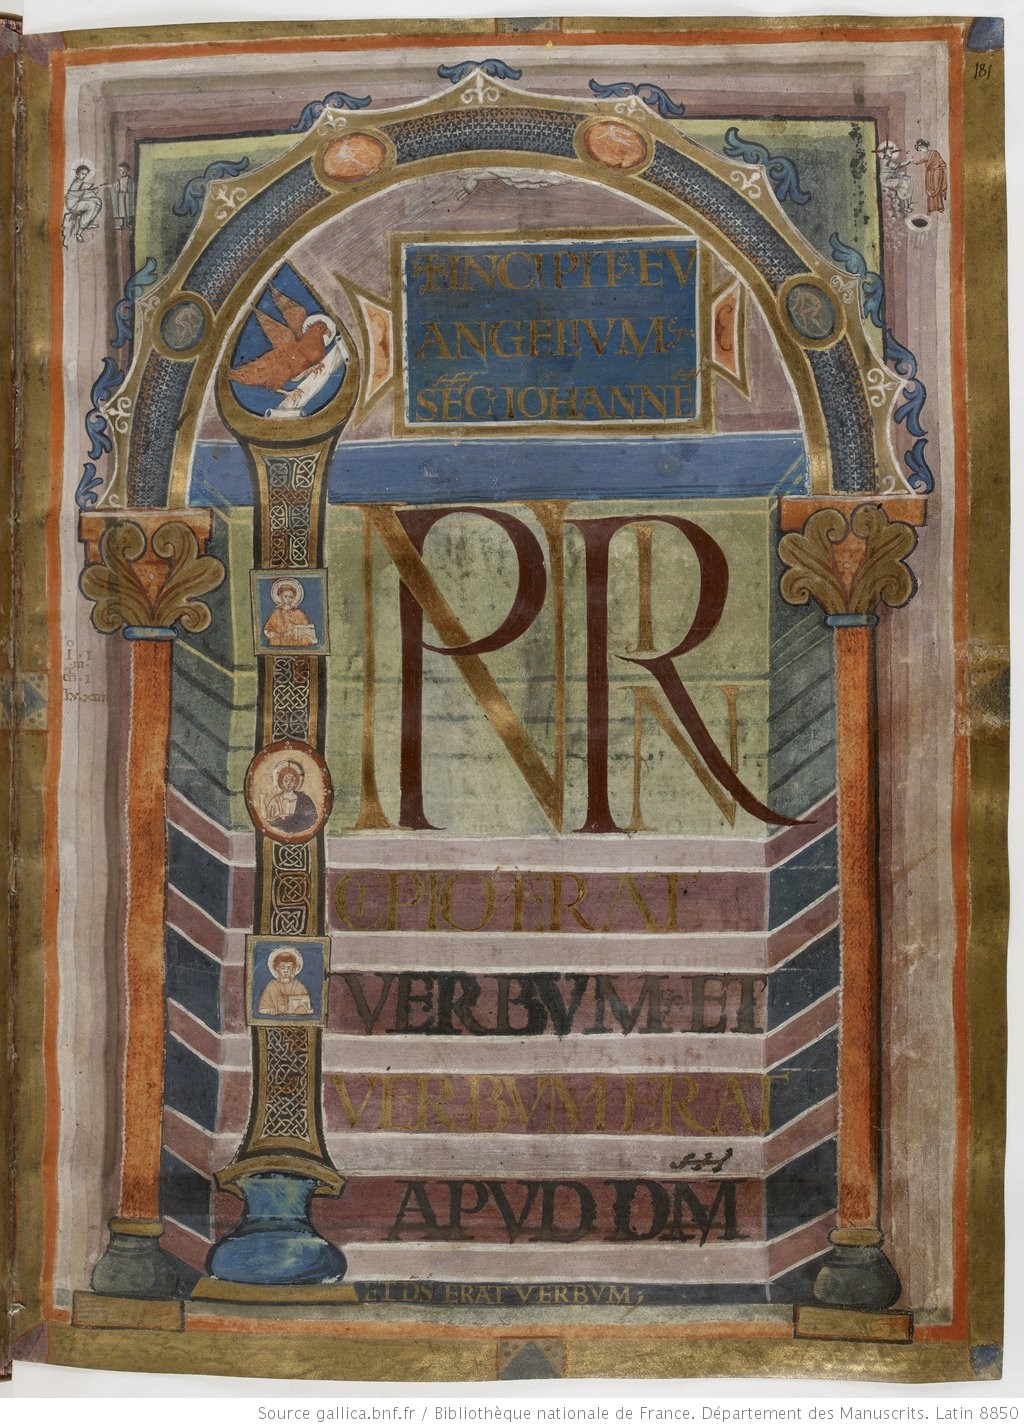 181
INCIPIT EV
ANGELIVM
SEC IOHANNE
IN PRIN
CIPIO ERAT
VERBVM ET
VERBVM ERAT
APVD DM
ET DS ERAT VERBVM;
Source gallica.bnf.fr / Bibliothèque nationale de France. Département des Manuscrits. Latin 8850